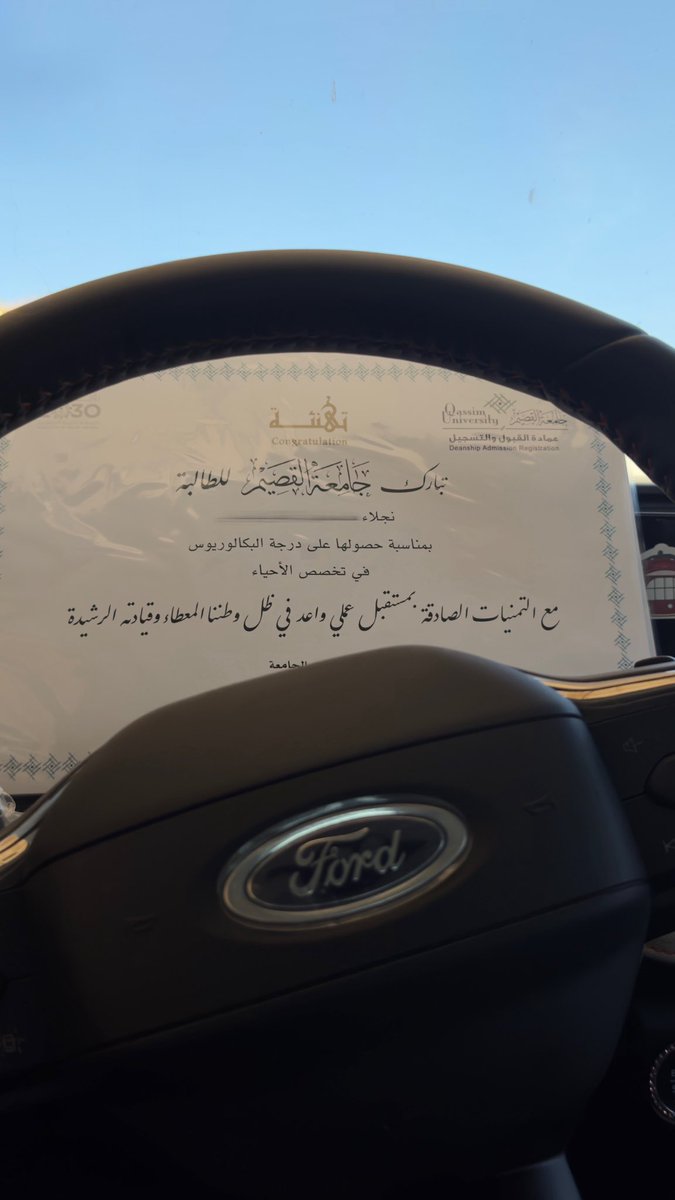 تهنئة
Congratulation
Qassim University
جامعة القصيم
عمادة القبول والتسجيل
Deanship Admission Registration
تبارك جامعة القصيم للطالبة
نجلاء
بمناسبة حصولها على درجة البكالوريوس
في تخصص الأحياء
مع التمنيات الصادقة بمستقبل عملي واعد في ظل وطننا المعطاء وقيادته الرشيدة
الجامعة
Ford